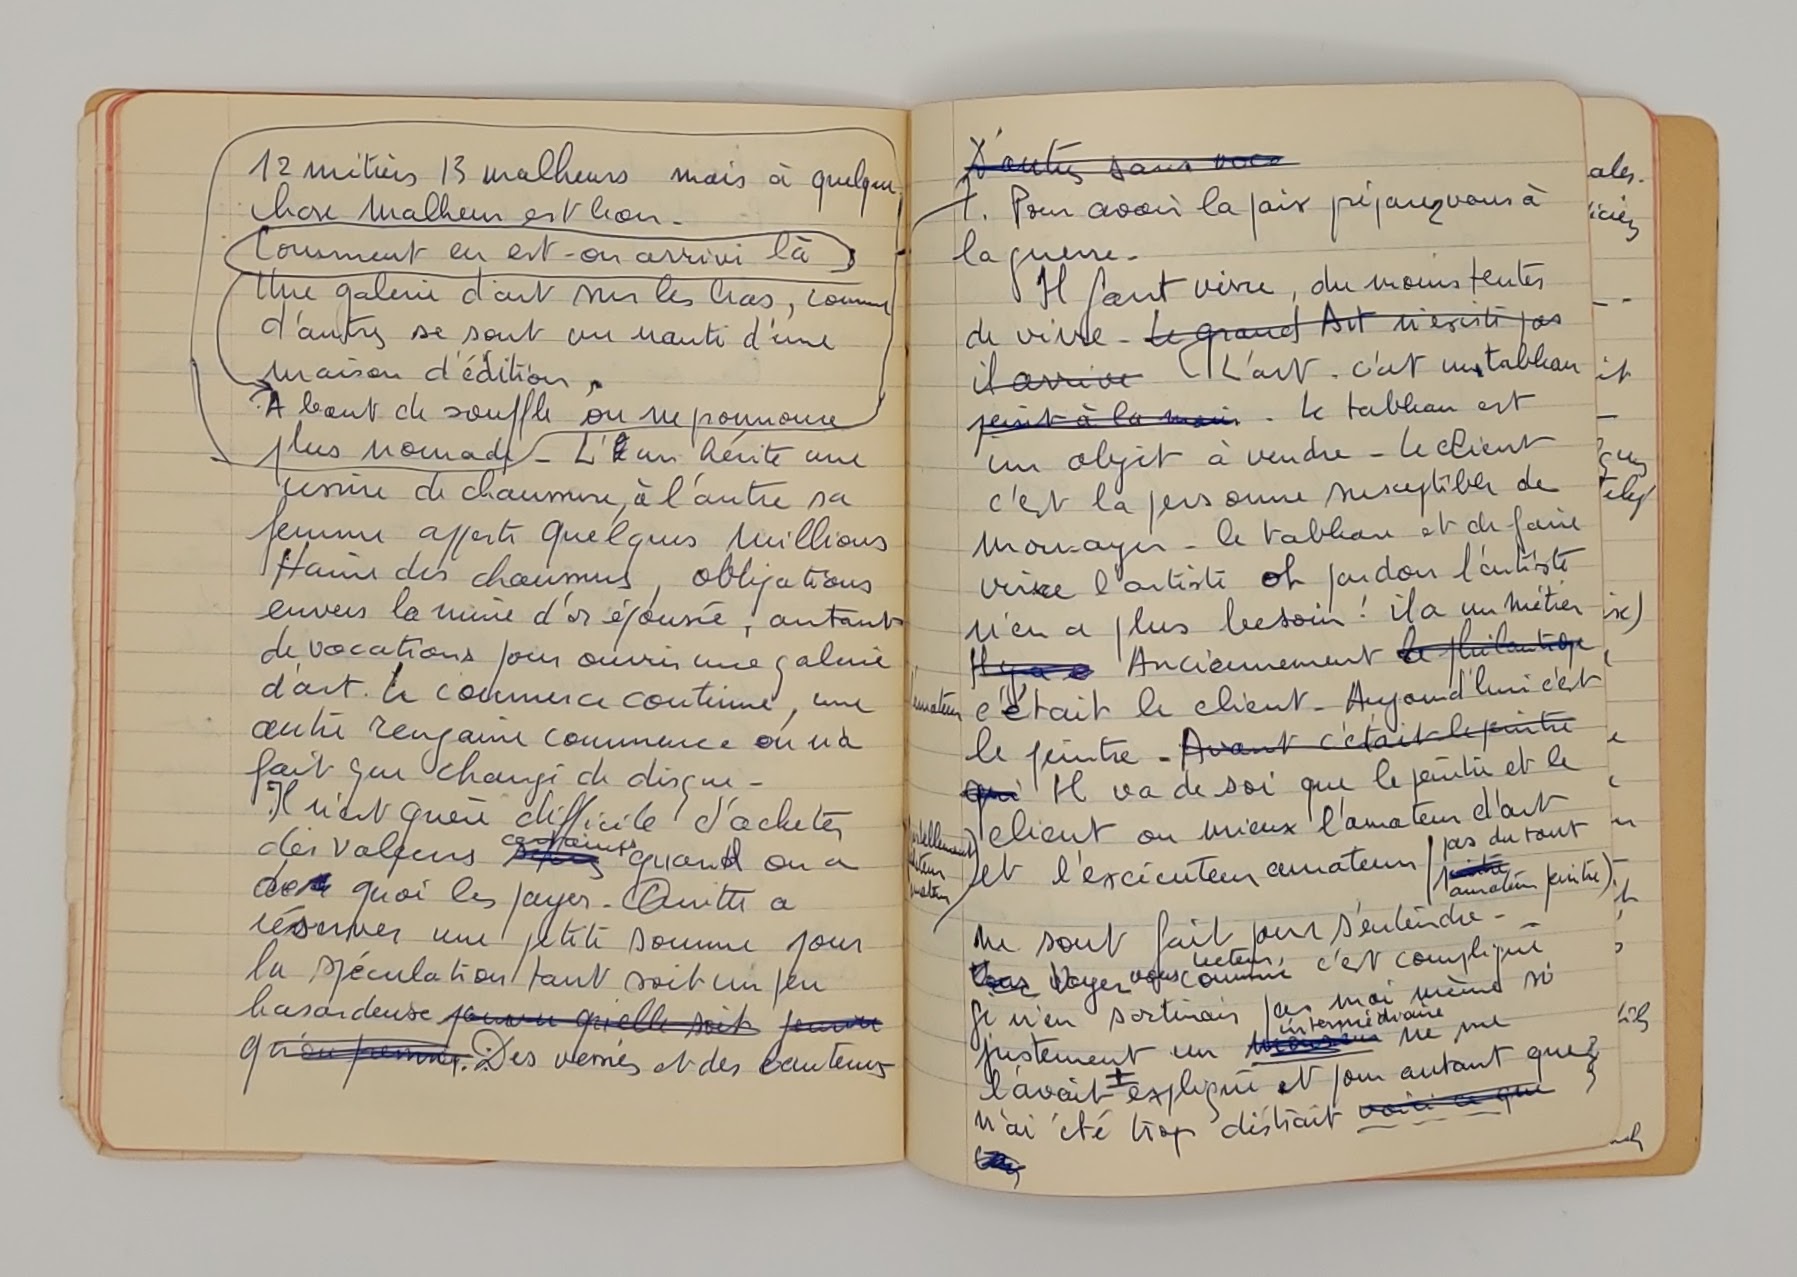 12 métiers 13 malheurs mais à quelque
chose malheur est bon.
Comment en est-on arrivé là
Une galerie d'art sur les bras, comme
d'autres se sont vu nanti d'une
maison d'édition.
A bout de souffle on ne prononce
plus nomade - L'un hérite une
usine de chaussure, à l'autre sa
femme apporte quelques millions
Haine des chaussures, obligations
envers la mine d'or épousée, autant
de vocations pour ouvrir une galerie
d'art. Le commerce continue, une
autre rengaine commence on n'a
fait que changé de disque -
Il n'est guère difficile d'acheter
des valeurs certaines quand on a
de quoi les payer. Quitte a
réserver une petite somme pour
la spéculation tant soit un peu
hasardeuse pourvu qu'elle soit
Des verriés et des couteaux
D'autres sans voca
1. Pour avoir la paix préparez vous à
la guerre.
Il faut vivre, du moins tenter
de vivre - Le grand Art n'existe pas
il arrive L'art. c'est un tableau
peint à la main. Le tableau est
un objet à vendre - le client
c'est la personne susceptible de
monnayer - le tableau et de faire
vivre l'artiste oh pardon l'artiste
n'en a plus besoin! il a un métier
Il y a Anciennement le philantrope
l'amateur c'était le client - Aujourd'hui c'est
le peintre - Avant c'était le peintre
qui Il va de soi que le peintre et le
client ou mieux l'amateur d'art
et l'exécuteur amateur (pas du tout
amateur peintre)
ne sont fait pour s'entendre -
Voyez vous lecteur comme c'est compliqué
Je n'en sortirais pas moi même si
justement un intermédiaire ne me
l'avait ± expliqué et pour autant que j
n'ai été trop distrait voici ce que